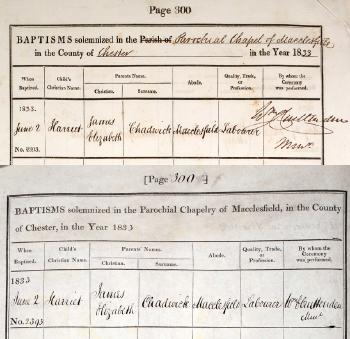 Page 300
BAPTISMS solemnized in the Parish of Parochial Chapel of Macclesfield
in the County of Chester in the Year 1833
When Baptized. Child's Christian Name. Parents Name. Christian. Surname. Abode. Quality, Trade, or Profession. By whom the Ceremony was performed.
1833.
June 2 Harriet James Elizabeth Chadwick Macclesfield Labourer Wm Cruttenden
No. 2393. Minr
[Page 300]
BAPTISMS solemnized in the Parochial Chapelry of Macclesfield, in the County
of Chester, in the Year 1833
When Baptized. Child's Christian Name. Parents' Names. Christian. Surname. Abode. Quality, Trade, or Profession. By whom the Ceremony was performed.
1833
June 2 Harriet James Elizabeth Chadwick Macclesfield Labourer Wm Cruttenden
No. 2393 Minr